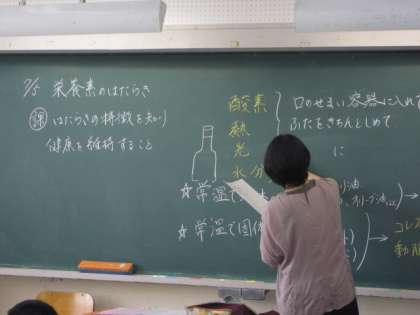 7/5 栄養素のはたらき
課 はたらきの特徴を知り
健康を維持すること
酸素
熱
光
水分
口のせまい容器に入れて
ふたをきちんとしめて
に
☆常温で
☆常温で固体
オリーブ油
コレ
動脈